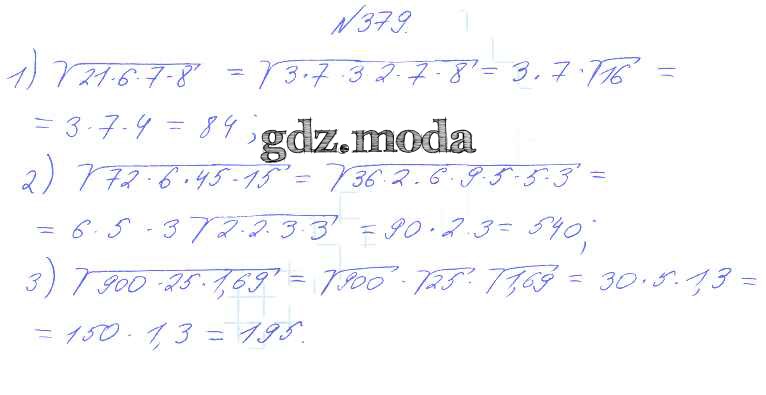 №379.
1) √21·6·7·8 = √3·7·3 2·7·8 = 3·7·√16 =
= 3·7·4 = 84;
gdz.moda
2) √72·6·45·15 = √36·2·6·9·5·5·3 =
= 6·5·3√2·2·3·3 = 90·2·3 = 540;
3) √900·25·1,69 = √900·√25·√1,69 = 30·5·1,3 =
= 150·1,3 = 195.